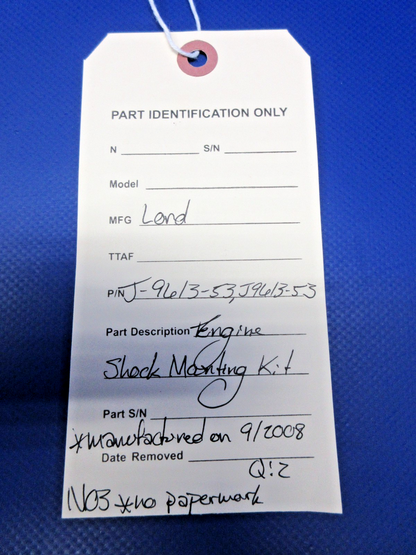 PART IDENTIFICATION ONLY
N S/N
Model
MFG Lord
TTAF
P/N J-9613-53, J9613-53
Part Description Engine
Shock Mounting Kit
Part S/N
*manufactured on 9/2008
Date Removed
Q:2
NO3 *no paperwork